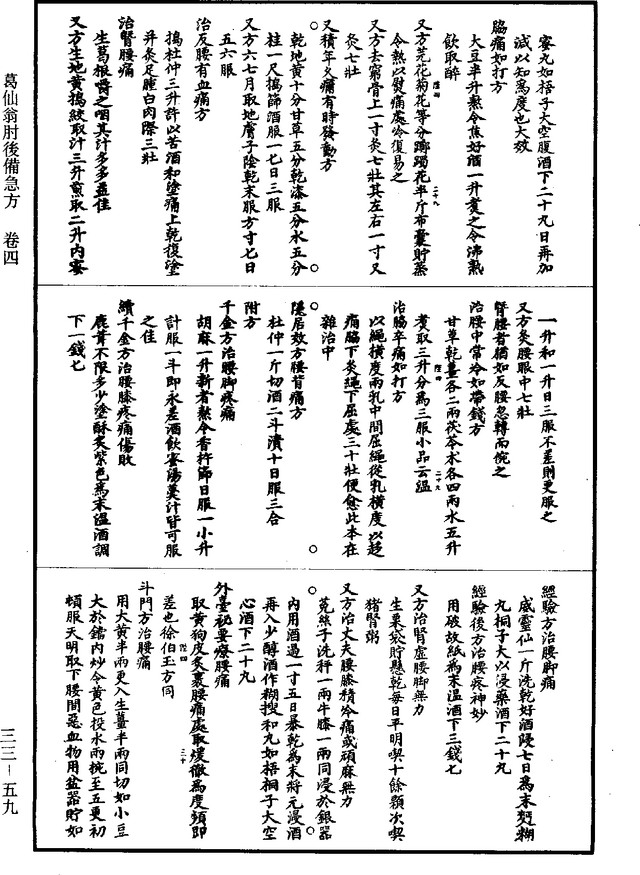 蜜丸如梧子大空腹酒下二十九日再加
減以知爲度也大效
脇痛如打方
大豆半升熬令焦好酒一升煑之令沸熟
飲取醉
又方芫花菊花等分躑躅花半斤布囊貯蒸
令熱以熨痛處冷復易之
又方去窮骨上一寸灸七壯其左右一寸又
灸七壯
又積年久痛有時發動方
乾地黄十分甘草五分乾漆五分水五分
桂一尺搗篩酒服一匕日三服
又方六七月取地膚子陰乾末服方寸匕日
五六服
治反腰有血痛方
搗杜仲三升許以苦酒和塗痛上乾復塗
并灸足腫白肉際三壯
治腎腰痛
生葛根嚼之咽其汁多多益佳
又方生地黄搗絞取汁三升煎取二升内蜜
一升和一升日三服不差則更服之
又方灸腰眼中七壯
腎腰者猶如反腰忽轉而惋之
治腰中常冷如帶錢方
甘草乾薑各二兩茯苓术各四兩水五升
煑取三升分爲三服小品云温
治脇卒痛如打方
以繩横度兩乳中間屈繩從乳横度以趍
痛脇下灸繩下屈處三十壯便愈此本在
雜治中
隱居效方腰背痛方
杜仲一斤切酒二斗漬十日服三合
附方
千金方治腰脚疼痛
胡麻一升新者熬令香杵篩日服一小升
計服一斗即永差酒飲蜜湯羹汁皆可服
之佳
續千金方治腰膝疼痛傷敗
鹿茸不限多少塗酥炙紫色爲末温酒調
下一錢匕
經驗方治腰脚痛
威靈仙一斤洗乾好酒浸七日爲末麪糊
丸桐子大以浸藥酒下二十九
經驗後方治腰疼神妙
用破故紙爲末温酒下三錢匕
又方治腎虚腰脚無力
生栗袋貯懸乾每日平明喫十餘顆次喫
猪腎粥
又方治丈夫腰膝積冷痛或頑麻無力
菟絲子洗秤一兩牛膝一兩同浸於銀器
内用酒過一寸五日暴乾爲末將元浸酒
再入少醇酒作糊搜和丸如梧桐子大空
心酒下二十九
外臺祕要療腰痛
取黄狗皮炙裹腰痛處取煖徹爲度頻即
差也徐伯玉方同
斗門方治腰痛
用大黄半兩更入生薑半兩同切如小豆
大於鐺内炒令黄色投水兩椀至五更初
頓服天明取下腰間惡血物用盆器貯如
葛仙翁肘後備急方 卷四
三三-五九